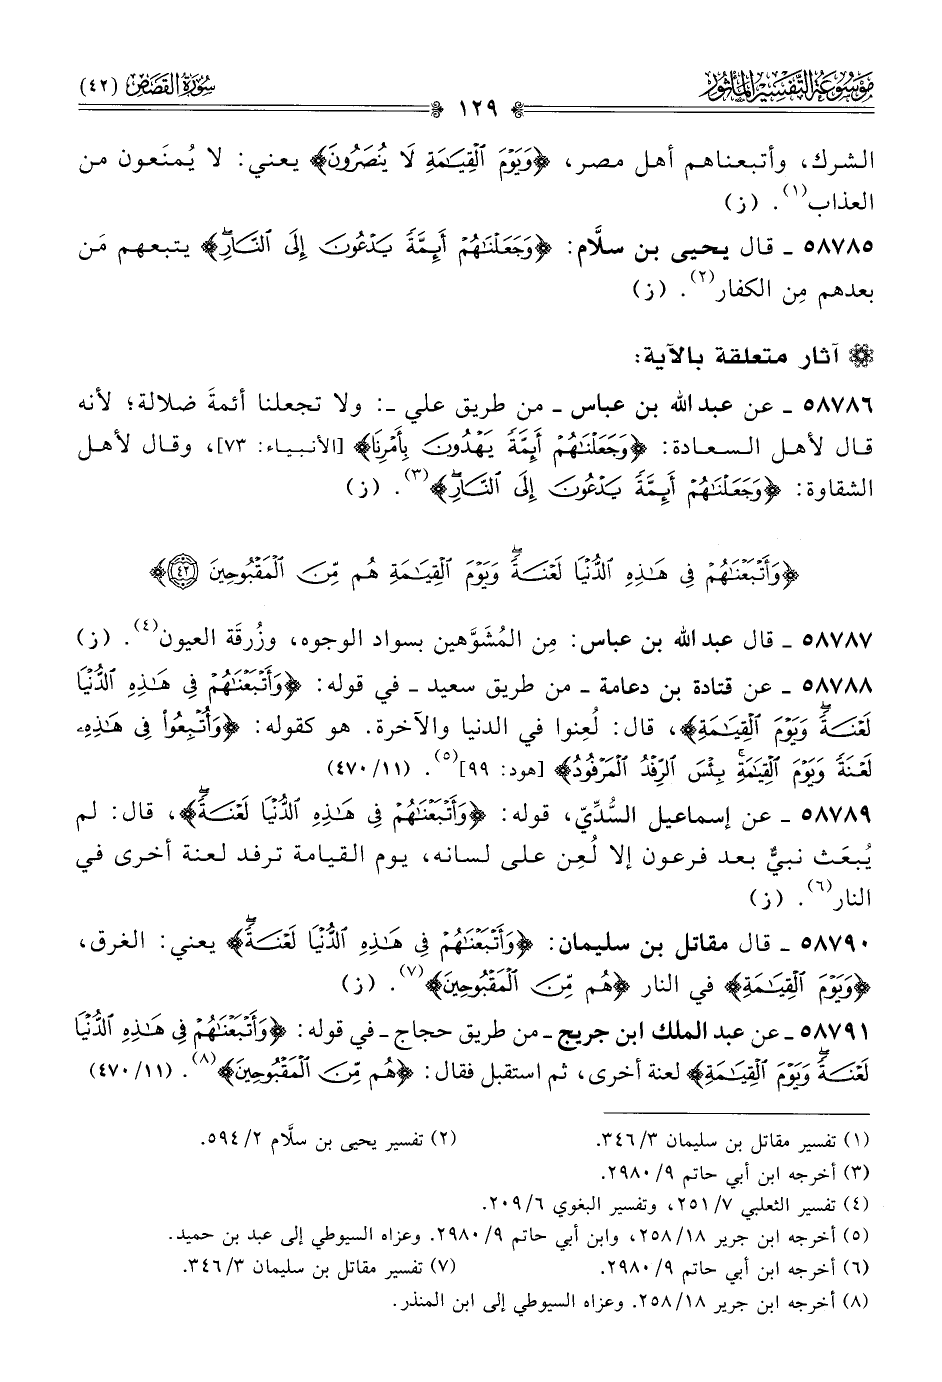 مَوْسُوعَة التَّفْسِير المَأثُور
١٢٩
سُورَةُ القَصَصِ (٤٢)
الشرك، وأتبعناهم أهل مصر، ﴿وَيَوْمَ ٱلْقِيَٰمَةِ لَا يُنصَرُونَ﴾ يعني: لا يُمنَعون من
العذاب(١). (ز)
٥٨٧٨٥ ـ قال يحيى بن سلَّام: ﴿وَجَعَلْنَٰهُمْ أَئِمَّةً يَدْعُونَ إِلَى ٱلنَّارِ﴾ يتبعهم مَن
بعدهم مِن الكفار(٢). (ز)
آثار متعلقة بالآية:
٥٨٧٨٦ ـ عن عبد الله بن عباس ـ من طريق علي ـ: ولا تجعلنا أئمةَ ضلالة؛ لأنه
قال لأهل السعادة: ﴿وَجَعَلْنَٰهُمْ أَئِمَّةً يَهْدُونَ بِأَمْرِنَا﴾ [الأنبياء: ٧٣]، وقال لأهل
الشقاوة: ﴿وَجَعَلْنَٰهُمْ أَئِمَّةً يَدْعُونَ إِلَى ٱلنَّارِ﴾(٣). (ز)
﴿وَأَتْبَعْنَٰهُمْ فِى هَٰذِهِ ٱلدُّنْيَا لَعْنَةً ۖ وَيَوْمَ ٱلْقِيَٰمَةِ هُم مِّنَ ٱلْمَقْبُوحِينَ ٤٢﴾
٥٨٧٨٧ ـ قال عبد الله بن عباس: مِن المُشَوَّهين بسواد الوجوه، وزُرقَة العيون(٤). (ز)
٥٨٧٨٨ ـ عن قتادة بن دعامة ـ من طريق سعيد ـ في قوله: ﴿وَأَتْبَعْنَٰهُمْ فِى هَٰذِهِ ٱلدُّنْيَا
لَعْنَةً ۖ وَيَوْمَ ٱلْقِيَٰمَةِ﴾، قال: لُعِنوا في الدنيا والآخرة. هو كقوله: ﴿وَأُتْبِعُواْ فِى هَٰذِهِۦ
لَعْنَةً وَيَوْمَ ٱلْقِيَٰمَةِ ۚ بِئْسَ ٱلرِّفْدُ ٱلْمَرْفُودُ﴾ [هود: ٩٩](٥). (٤٧٠/١١)
٥٨٧٨٩ ـ عن إسماعيل السُّدِّيّ، قوله: ﴿وَأَتْبَعْنَٰهُمْ فِى هَٰذِهِ ٱلدُّنْيَا لَعْنَةً ۖ﴾، قال: لم
يُبعَث نبيٌّ بعد فرعون إلا لُعِن على لسانه، يوم القيامة ترفد لعنة أخرى في
النار(٦). (ز)
٥٨٧٩٠ ـ قال مقاتل بن سليمان: ﴿وَأَتْبَعْنَٰهُمْ فِى هَٰذِهِ ٱلدُّنْيَا لَعْنَةً ۖ﴾ يعني: الغرق،
﴿وَيَوْمَ ٱلْقِيَٰمَةِ﴾ في النار ﴿هُم مِّنَ ٱلْمَقْبُوحِينَ﴾(٧). (ز)
٥٨٧٩١ ـ عن عبد الملك ابن جريج ـ من طريق حجاج ـ في قوله: ﴿وَأَتْبَعْنَٰهُمْ فِى هَٰذِهِ ٱلدُّنْيَا
لَعْنَةً ۖ وَيَوْمَ ٱلْقِيَٰمَةِ﴾ لعنة أخرى، ثم استقبل فقال: ﴿هُم مِّنَ ٱلْمَقْبُوحِينَ﴾(٨). (٤٧٠/١١)
(١) تفسير مقاتل بن سليمان ٣/ ٣٤٦. (٢) تفسير يحيى بن سلَّام ٢/ ٥٩٤.
(٣) أخرجه ابن أبي حاتم ٩/ ٢٩٨٠.
(٤) تفسير الثعلبي ٧/ ٢٥١، وتفسير البغوي ٦/ ٢٠٩.
(٥) أخرجه ابن جرير ١٨/ ٢٥٨، وابن أبي حاتم ٩/ ٢٩٨٠. وعزاه السيوطي إلى عبد بن حميد.
(٦) أخرجه ابن أبي حاتم ٩/ ٢٩٨٠. (٧) تفسير مقاتل بن سليمان ٣/ ٣٤٦.
(٨) أخرجه ابن جرير ١٨/ ٢٥٨. وعزاه السيوطي إلى ابن المنذر.